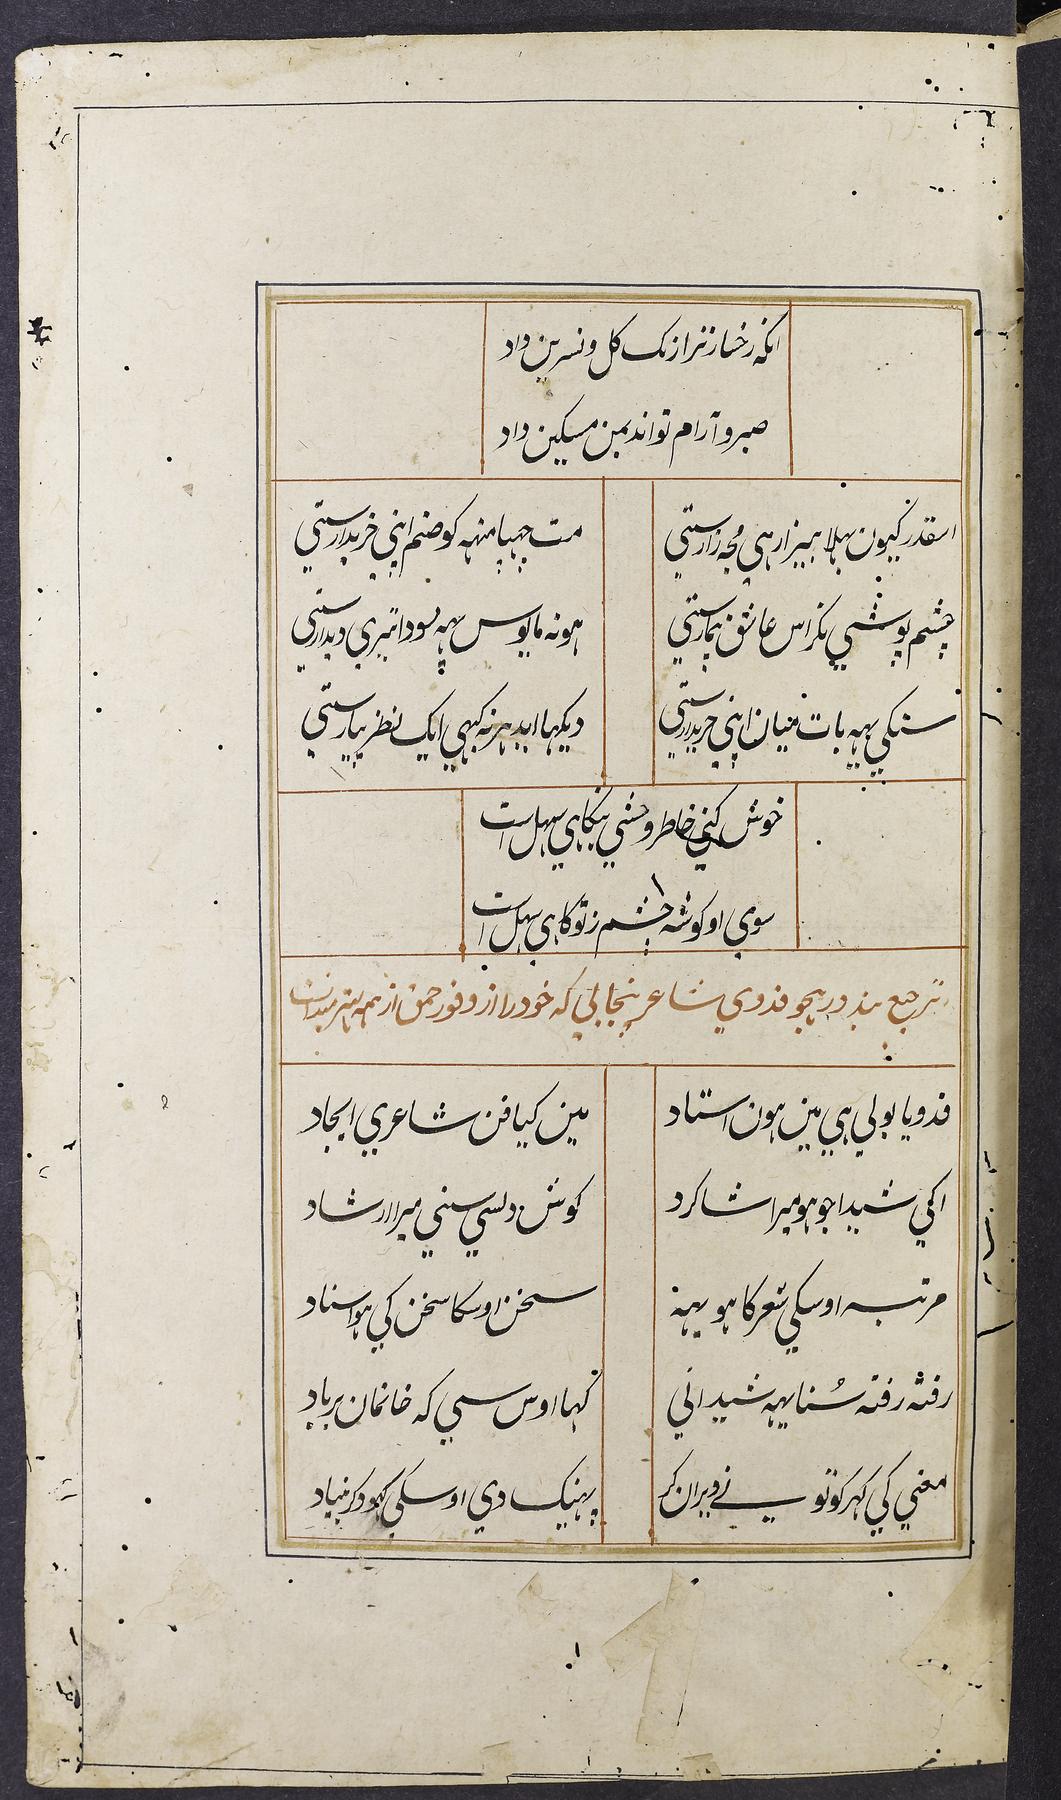 انکه رخسار ترا رنک کل و نسرین داد
صبر و آرام تواند بمن مسکین داد
اسقدر کیون بهلا بیزار هی مجه زارستی
مت چهپا منهه کو صنم اپنی خریدارستی
چشم پوشی نکر اس عاشق بیمارستی
هو نه مایوس یهه سودا تیری دیدارستی
سنکی یهه بات میان اپنی خریدارستی
دیکها ایدهر نه کبهی ایک نظر پیارستی
خوش کنی خاطر وحشی بنکاهی سهل است
سوی او کوشه چشم ز تو کاهی سهل است
ترجیع بند در هجو فدوی شاعر پنجابی که خود را از وفور حمق از همه بهتر میدانست
فدویا بولی هی مین هون استاد
مین کیا فن شاعری ایجاد
اکی شیدا جو هو میرا شاکرد
کوش دلسی سنی میرا ارشاد
مرتبه اوسکی شعر کا هو یهه
سخن اوسکا سخن کی هو اسناد
رفته رفته سُنا یهه شیدانی
کها اوس سی که خانمان برباد
معنی کی کهر کو تو نے ویران کر
پهینک دی اوسکی کهود کر بنیاد